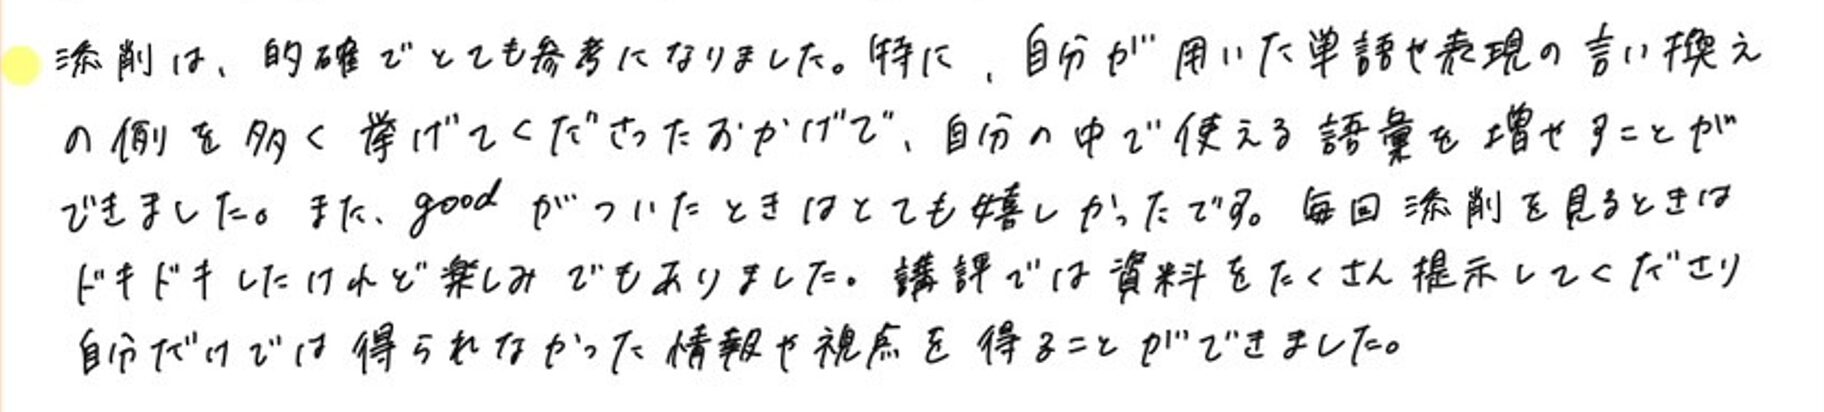 添削は、的確でとても参考になりました。特に、自分が用いた単語や表現の言い換え
の例を多く挙げてくださったおかげで、自分の中で使える語彙を増やすことが
できました。また、goodがついたときはとても嬉しかったです。毎回添削を見るときは
ドキドキしたけれど楽しみでもありました。講評では資料をたくさん提示してくださり
自分だけでは得られなかった情報や視点を得ることができました。